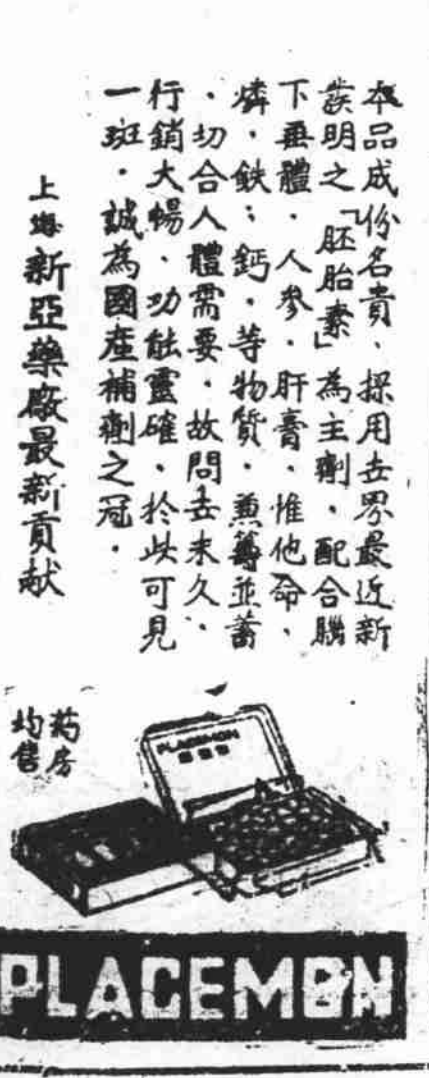 本品成份名貴、採用去界最近新
發明之「胚胎素」為主劑．配合腦
下垂體．人參．肝膏．惟他命、
燐．鉄；鈣．等物質．兼籌並蓄
．切合人體需要．故問去未久、
行銷大暢、功能靈確．於此可見
一斑．誠為國產補劑之冠．
上海新亞藥廠最新貢献
药房
均售
PLACEMON
PLACEMON